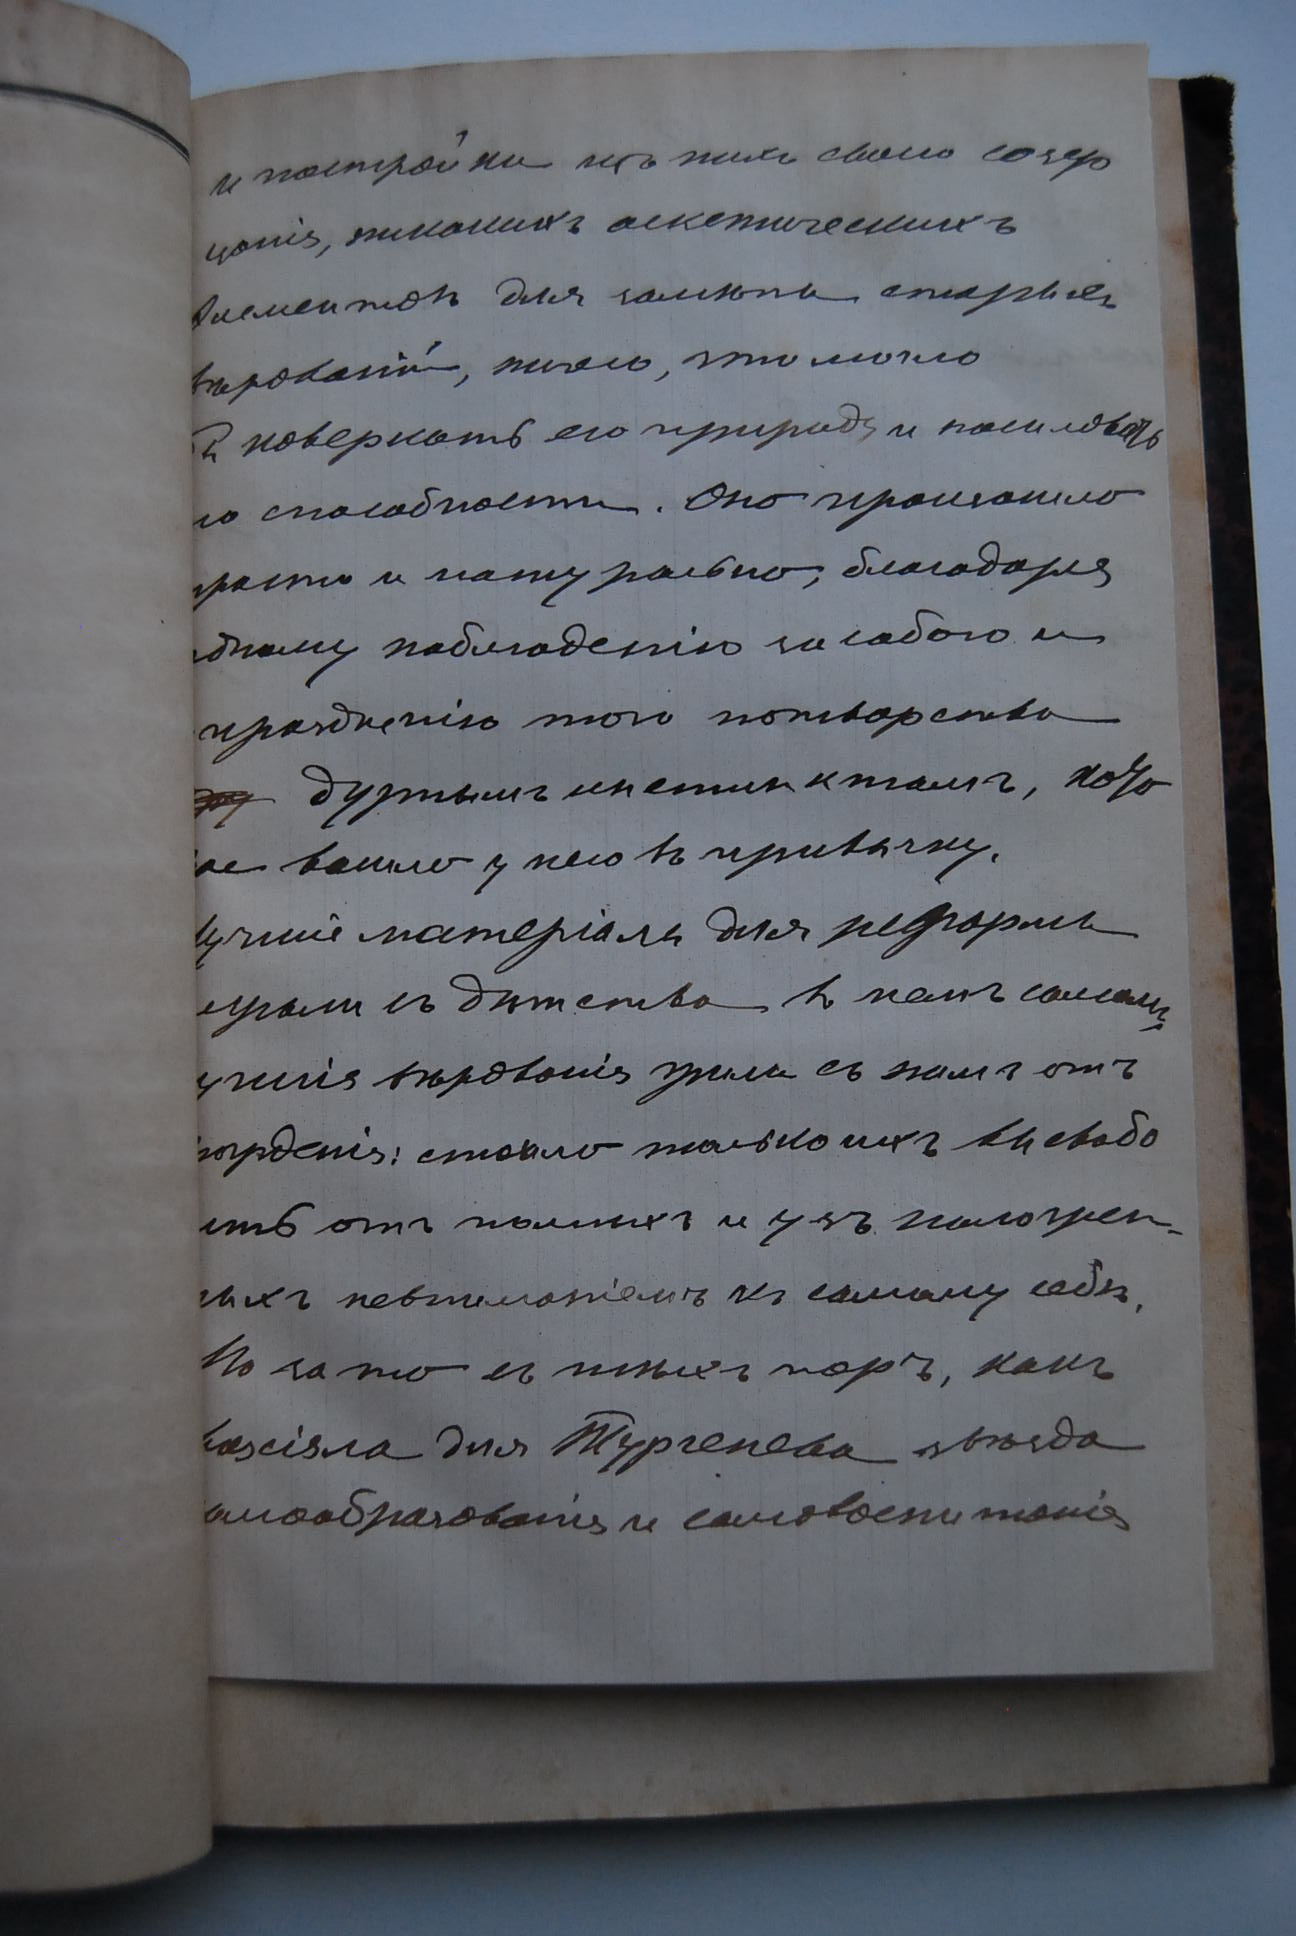 и постройки изъ нихъ своего созер
цанія, никакихъ аскетическихъ
элементовъ для замѣны старыхъ
вѣрованій, ничего, что могло
коверкать его природу и насиловать
его способности. Оно произошло
просто и натурально, благодаря
одному наблюденію за собою и
упраздненію того потворства
дурнымъ инстинктамъ, кото
рое вошло у него въ привычку.
Лучшіе матеріалы для реформы
лежали съ дѣтства въ немъ самомъ,
лучшія вѣрованія жили съ нимъ отъ
рожденія: стоило только ихъ высвобо
дить отъ помѣхъ и узъ наложен-
ныхъ невниманіемъ къ самому себѣ.
Но за то съ тѣхъ поръ, какъ
возсіяла для Тургенева звѣзда
самообразованія и самовоспитанія